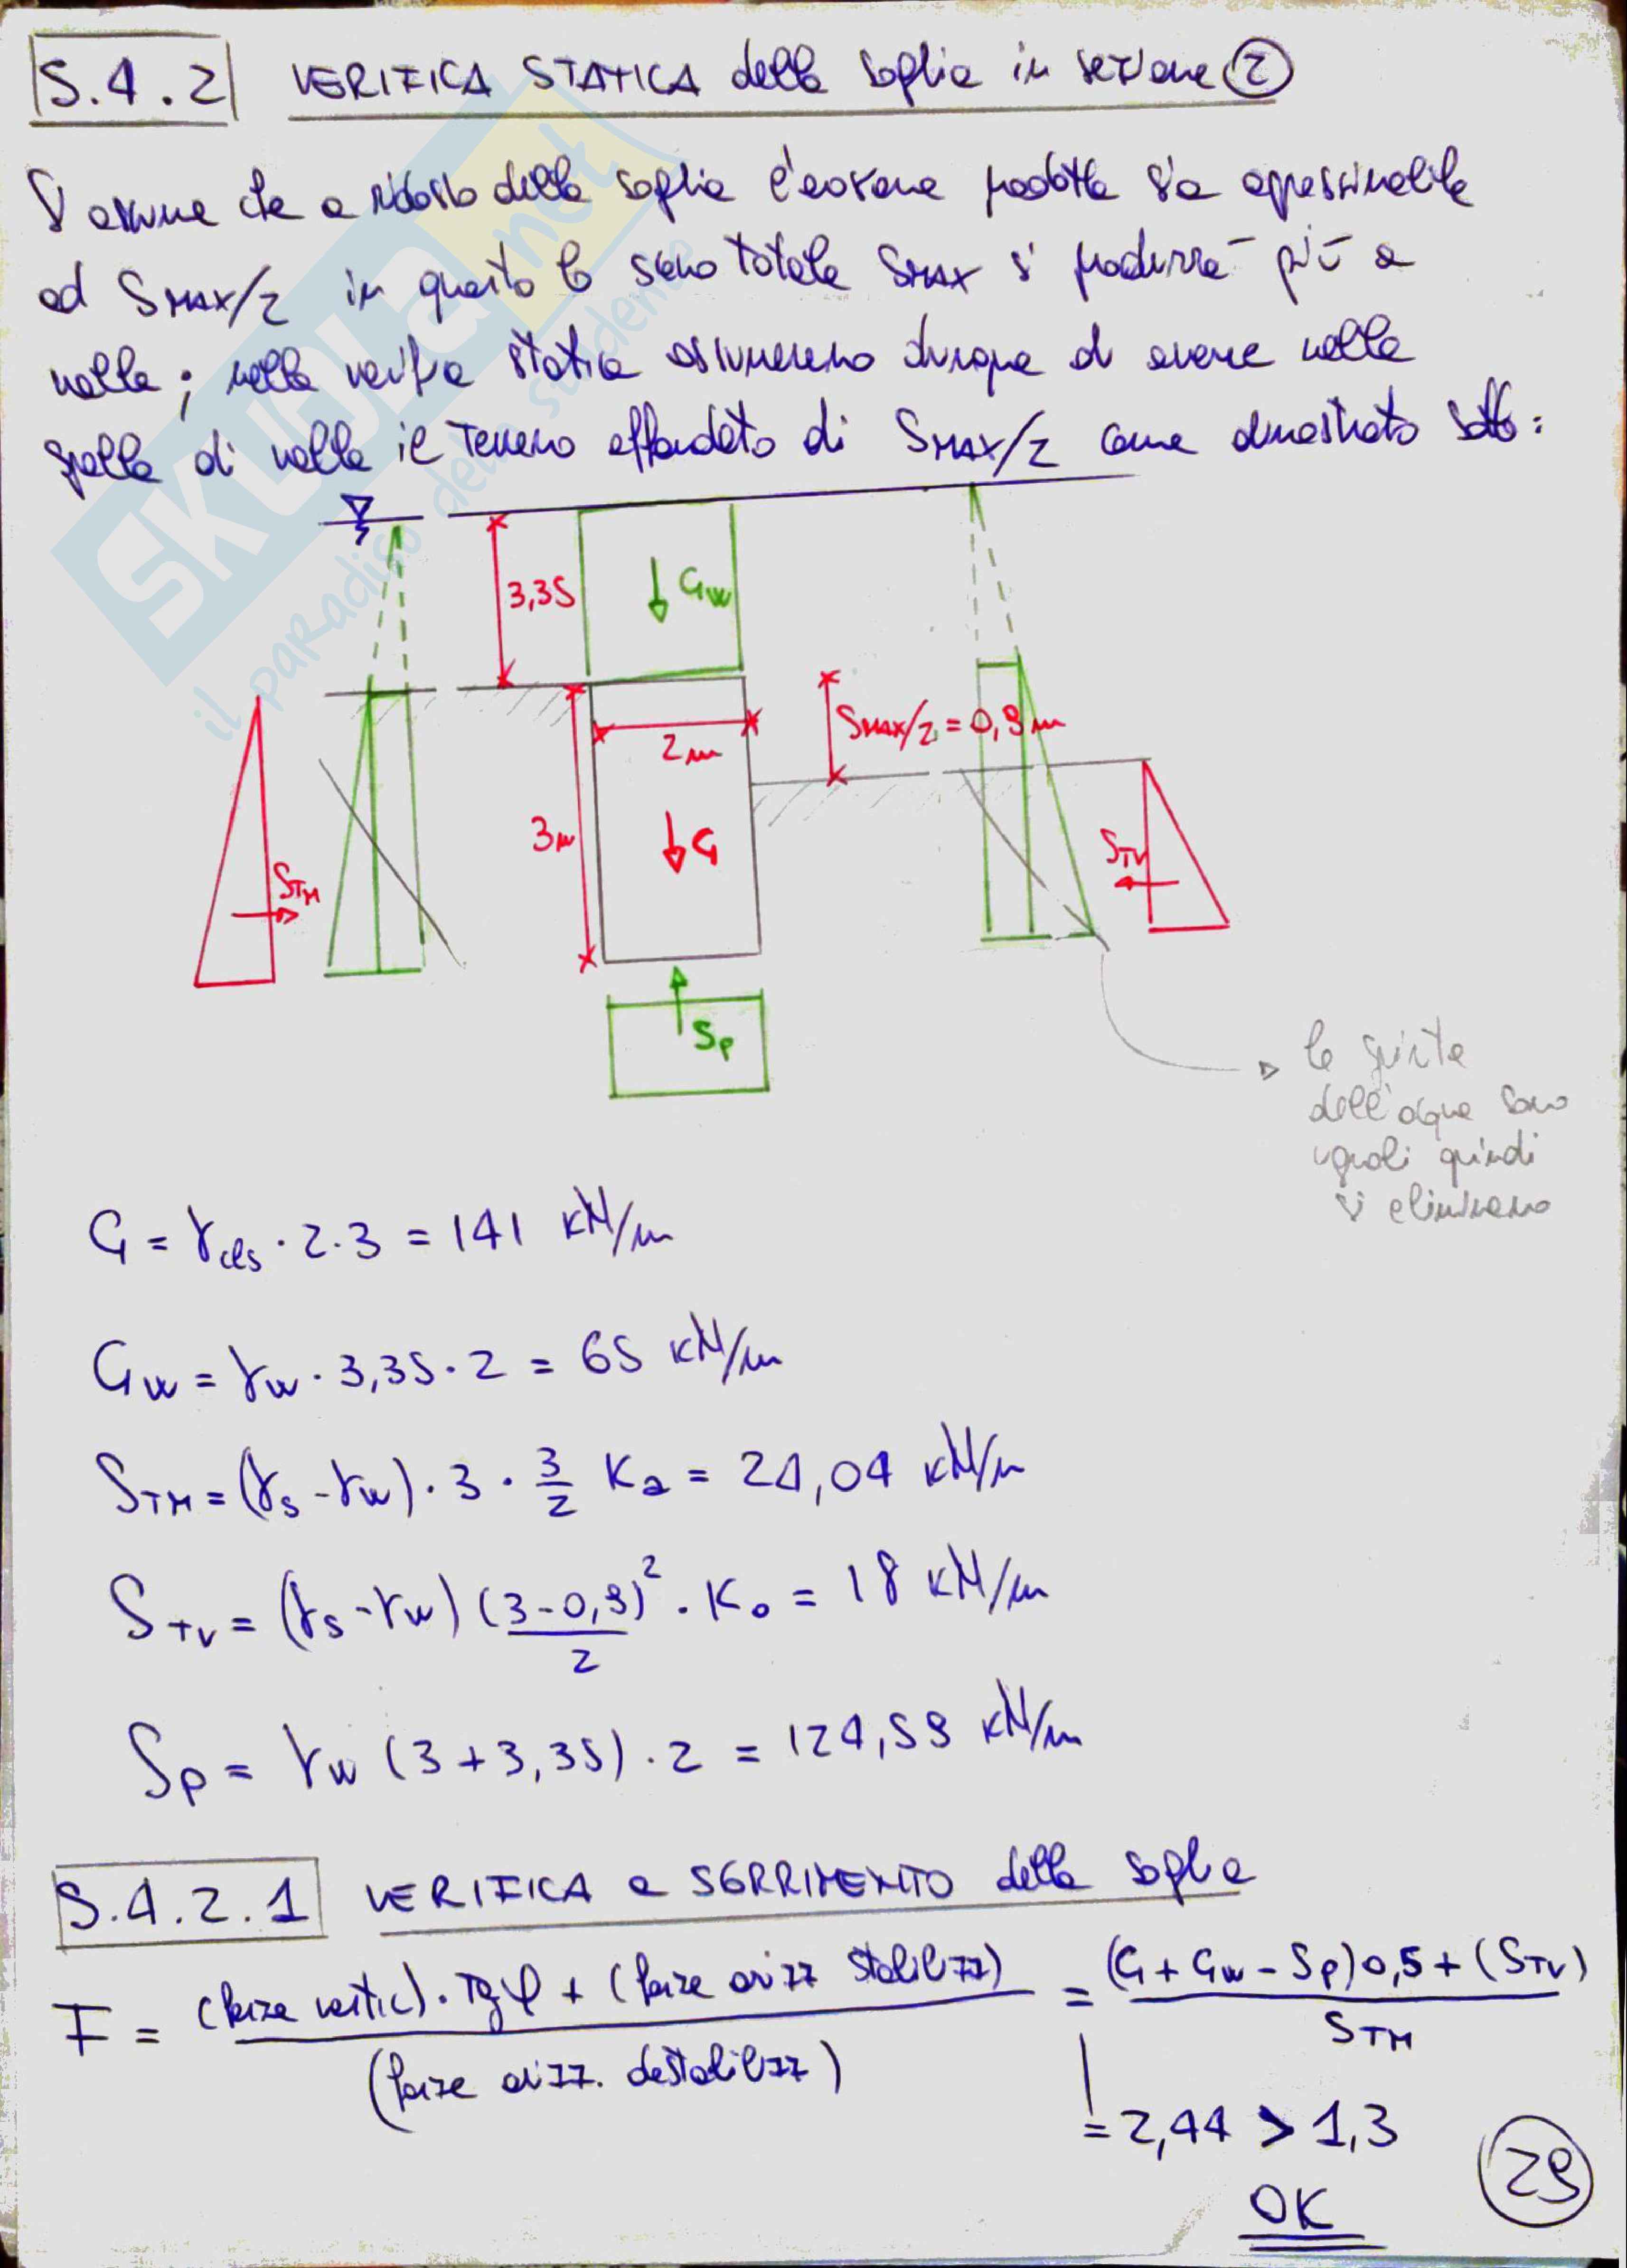 5.4.2 VERIFICA STATICA della soglia in sezione 2
Si assume che a ridosso della soglia l'erosione prodotta sia approssimabile
ad SMAX/2 in quanto lo scavo totale SMAX si produrrà più a
valle; nella verifica statica assumeremo dunque di avere nella
spalla di valle il terreno affondato di SMAX/2 come dimostrato sotto:
3,35
Gw
SMAX/2 = 0,9 m
2 m
3m
G
STM
STV
Sp
le spinte
dell'acqua sono
uguali quindi
si eliminano
G = γcls · 2 · 3 = 141 kN/m
Gw = γw · 3,35 · 2 = 65 kN/m
STM = (γs - γw) · 3 · 3/2 Ka = 24,04 kN/m
STV = (γs - γw) (3-0,9)²/2 · Ko = 18 kN/m
Sp = γw (3 + 3,35) · 2 = 124,59 kN/m
5.4.2.1 VERIFICA a SCORRIMENTO della soglia
F = (forze vertic) · Tg φ + (forze orizz stabilizz) / (forze orizz. destabilizz) = (G + Gw - Sp) 0,5 + (STV) / STM
= 2,44 > 1,3
OK
29
SKUOLA.net
il paradiso dello studente